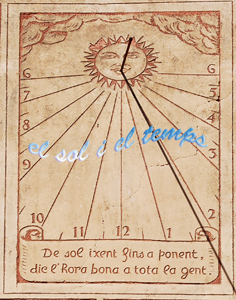 6 6
7 5
8 4
el sol i el temps
9 3
10 11 12 1 2
De sol ixent fins a ponent,
dic l'hora bona a tota la gent.